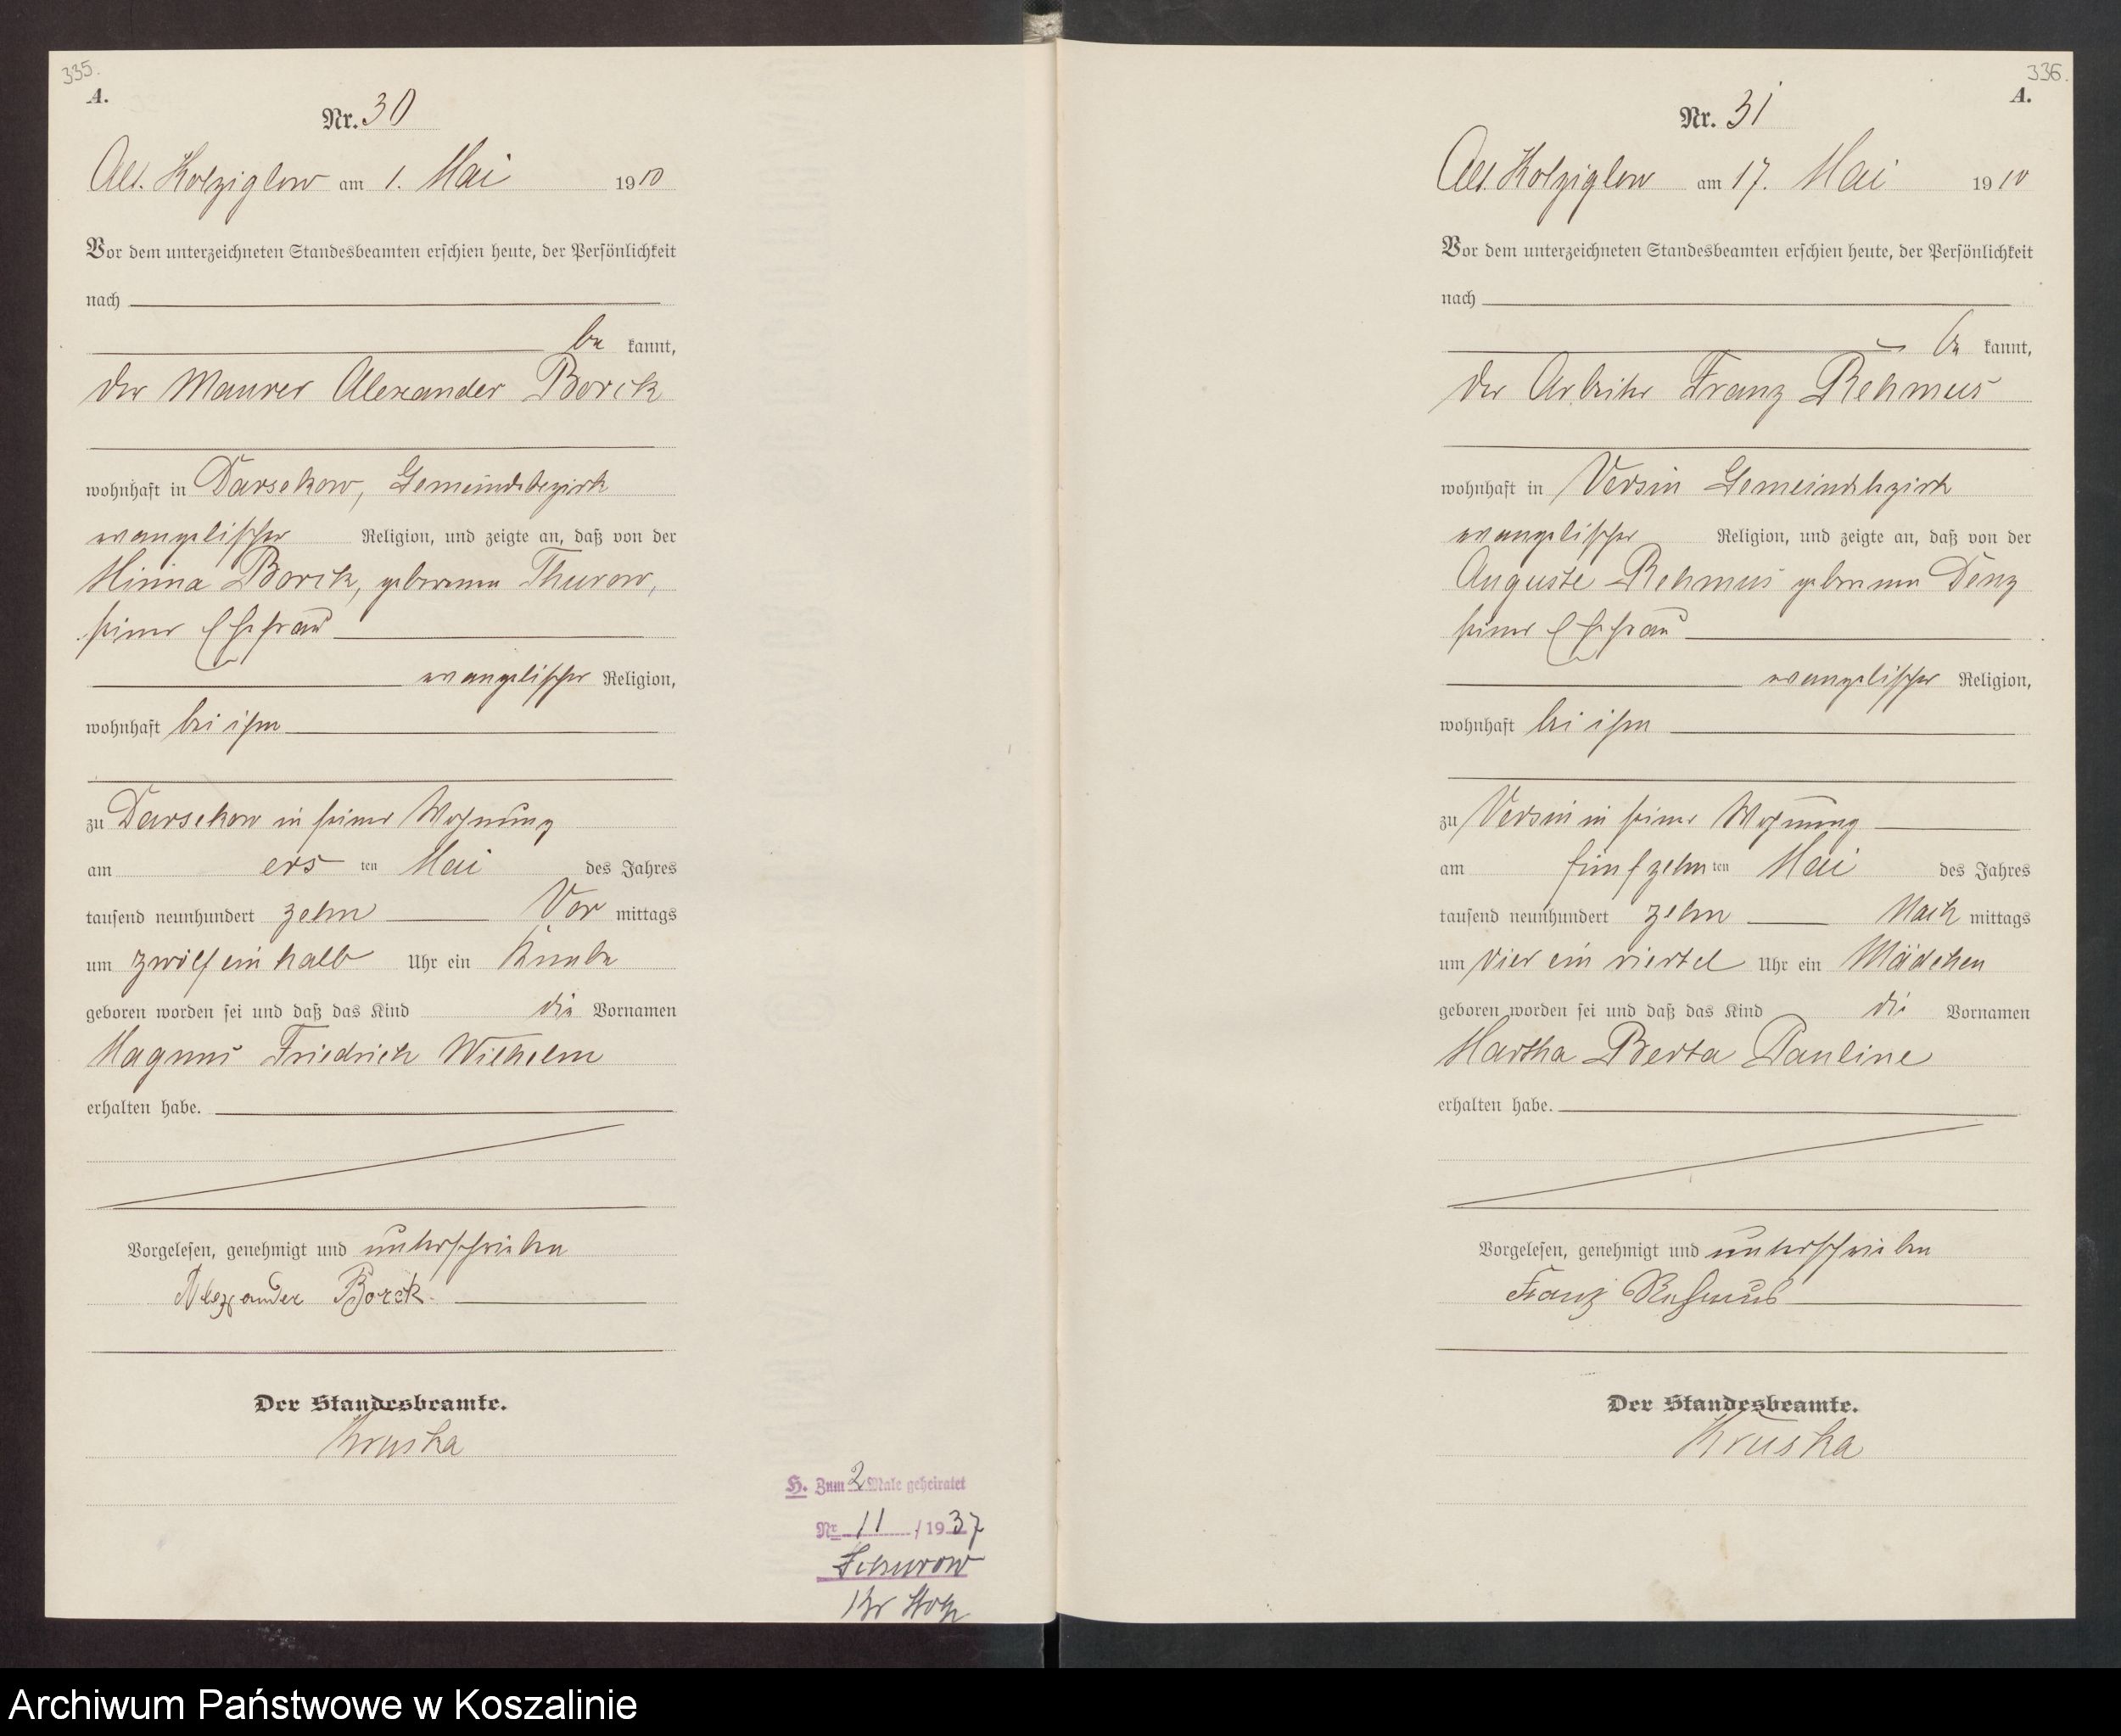 335.
A.
Nr. 30
Alt. Kolziglow am 1. Mai 1910
Vor dem unterzeichneten Standesbeamten erschien heute, der Persönlichkeit
nach
be kannt,
der Maurer Alexander Borck
wohnhaft in Darsekow, Gemeindebezirk
evangelischer Religion, und zeigte an, daß von der
Minna Borck, geborenen Thurow,
seiner Ehefrau
evangelischer Religion,
wohnhaft bei ihm
zu Darsekow in seiner Wohnung
am ers ten Mai des Jahres
tausend neunhundert zehn Vor mittags
um zwölf ein halb Uhr ein Knabe
geboren worden sei und daß das Kind die Vornamen
Magnus Friedrich Wilhelm
erhalten habe.
Vorgelesen, genehmigt und unterschrieben
Alexander Borck.
Der Standesbeamte.
Kruska
H. Zum 2 Male geheiratet
Nr 11 / 1937
Kr Stolp
336.
A.
Nr. 31
Alt. Kolziglow am 17. Mai 1910
Vor dem unterzeichneten Standesbeamten erschien heute, der Persönlichkeit
nach
be kannt,
der Arbeiter Franz Rehmus
wohnhaft in Versin Gemeindebezirk
evangelischer Religion, und zeigte an, daß von der
Auguste Rehmus geborenen Denz
seiner Ehefrau
evangelischer Religion,
wohnhaft bei ihm
zu Versin in seiner Wohnung
am fünfzehn ten Mai des Jahres
tausend neunhundert zehn Nach mittags
um vier ein viertel Uhr ein Mädchen
geboren worden sei und daß das Kind die Vornamen
Martha Berta Pauline
erhalten habe.
Vorgelesen, genehmigt und unterschrieben
Franz Rehmus
Der Standesbeamte.
Kruska
Archiwum Państwowe w Koszalinie